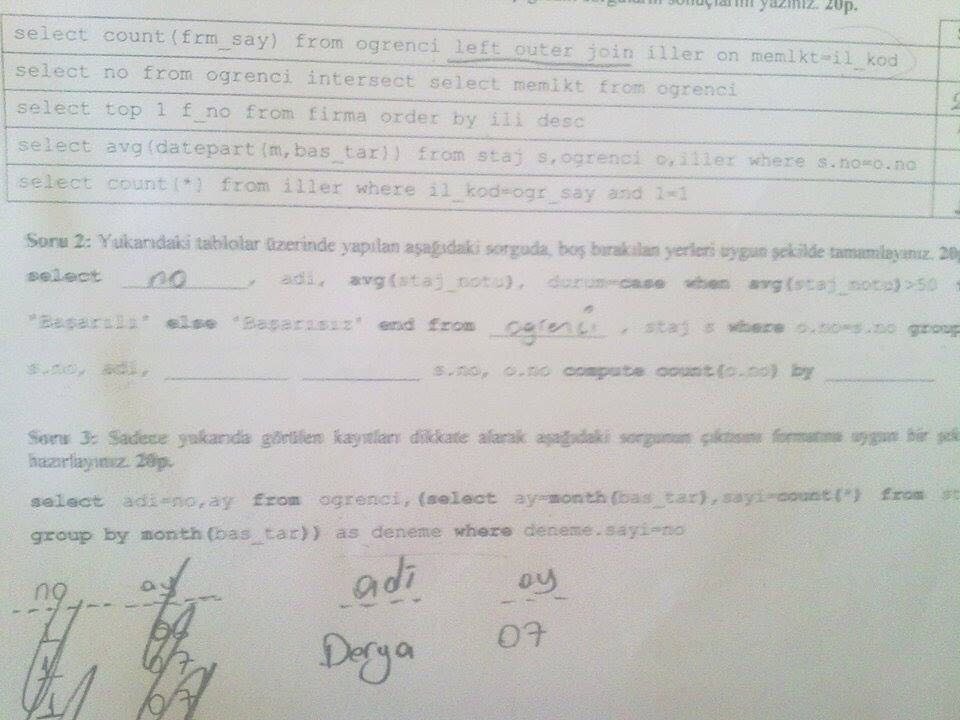 sonuçlarını yazınız. 20p.
select count(frm_say) from ogrenci left outer join iller on memlkt=il_kod
select no from ogrenci intersect select memlkt from ogrenci
select top 1 f_no from firma order by ili desc
select avg(datepart(m,bas_tar)) from staj s,ogrenci o,iller where s.no=o.no
select count(*) from iller where il_kod=ogr_say and 1=1
Soru 2: Yukarıdaki tablolar üzerinde yapılan aşağıdaki sorguda, boş bırakılan yerleri uygun şekilde tamamlayınız. 20p
select no, adi, avg(staj_notu), durum=case when avg(staj_notu)>50
"Başarılı" else "Başarısız" end from ogrenci , staj s where o.no=s.no group
s.no, adi, s.no, o.no compute count(o.no) by
Soru 3: Sadece yukarıda görülen kayıtları dikkate alarak aşağıdaki sorgunun çıktısını formatına uygun bir şek
hazırlayınız. 20p.
select adi=no,ay from ogrenci,(select ay=month(bas_tar),sayi=count(*) from st
group by month(bas_tar)) as deneme where deneme.sayi=no
no ay adi ay
Derya 07
07
07